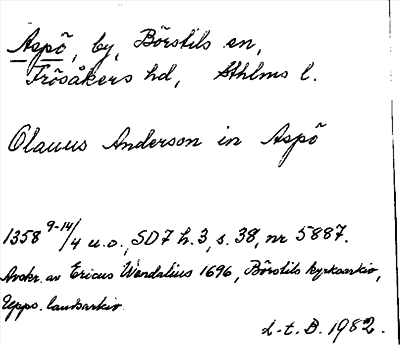 Aspö, by, Börstils sn,
Frösåkers hd, Sthlms l.
Olauus Anderson in Aspö
1358 9-14/4 u.o., SD7 h.3, s.38, nr 5887.
Avskr. av Ericus Wendalius 1696, Börstils kyrkoarkiv,
Upps. landsarkiv.
L-t. B. 1982.